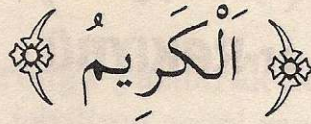 اَلْكَرِيمُ